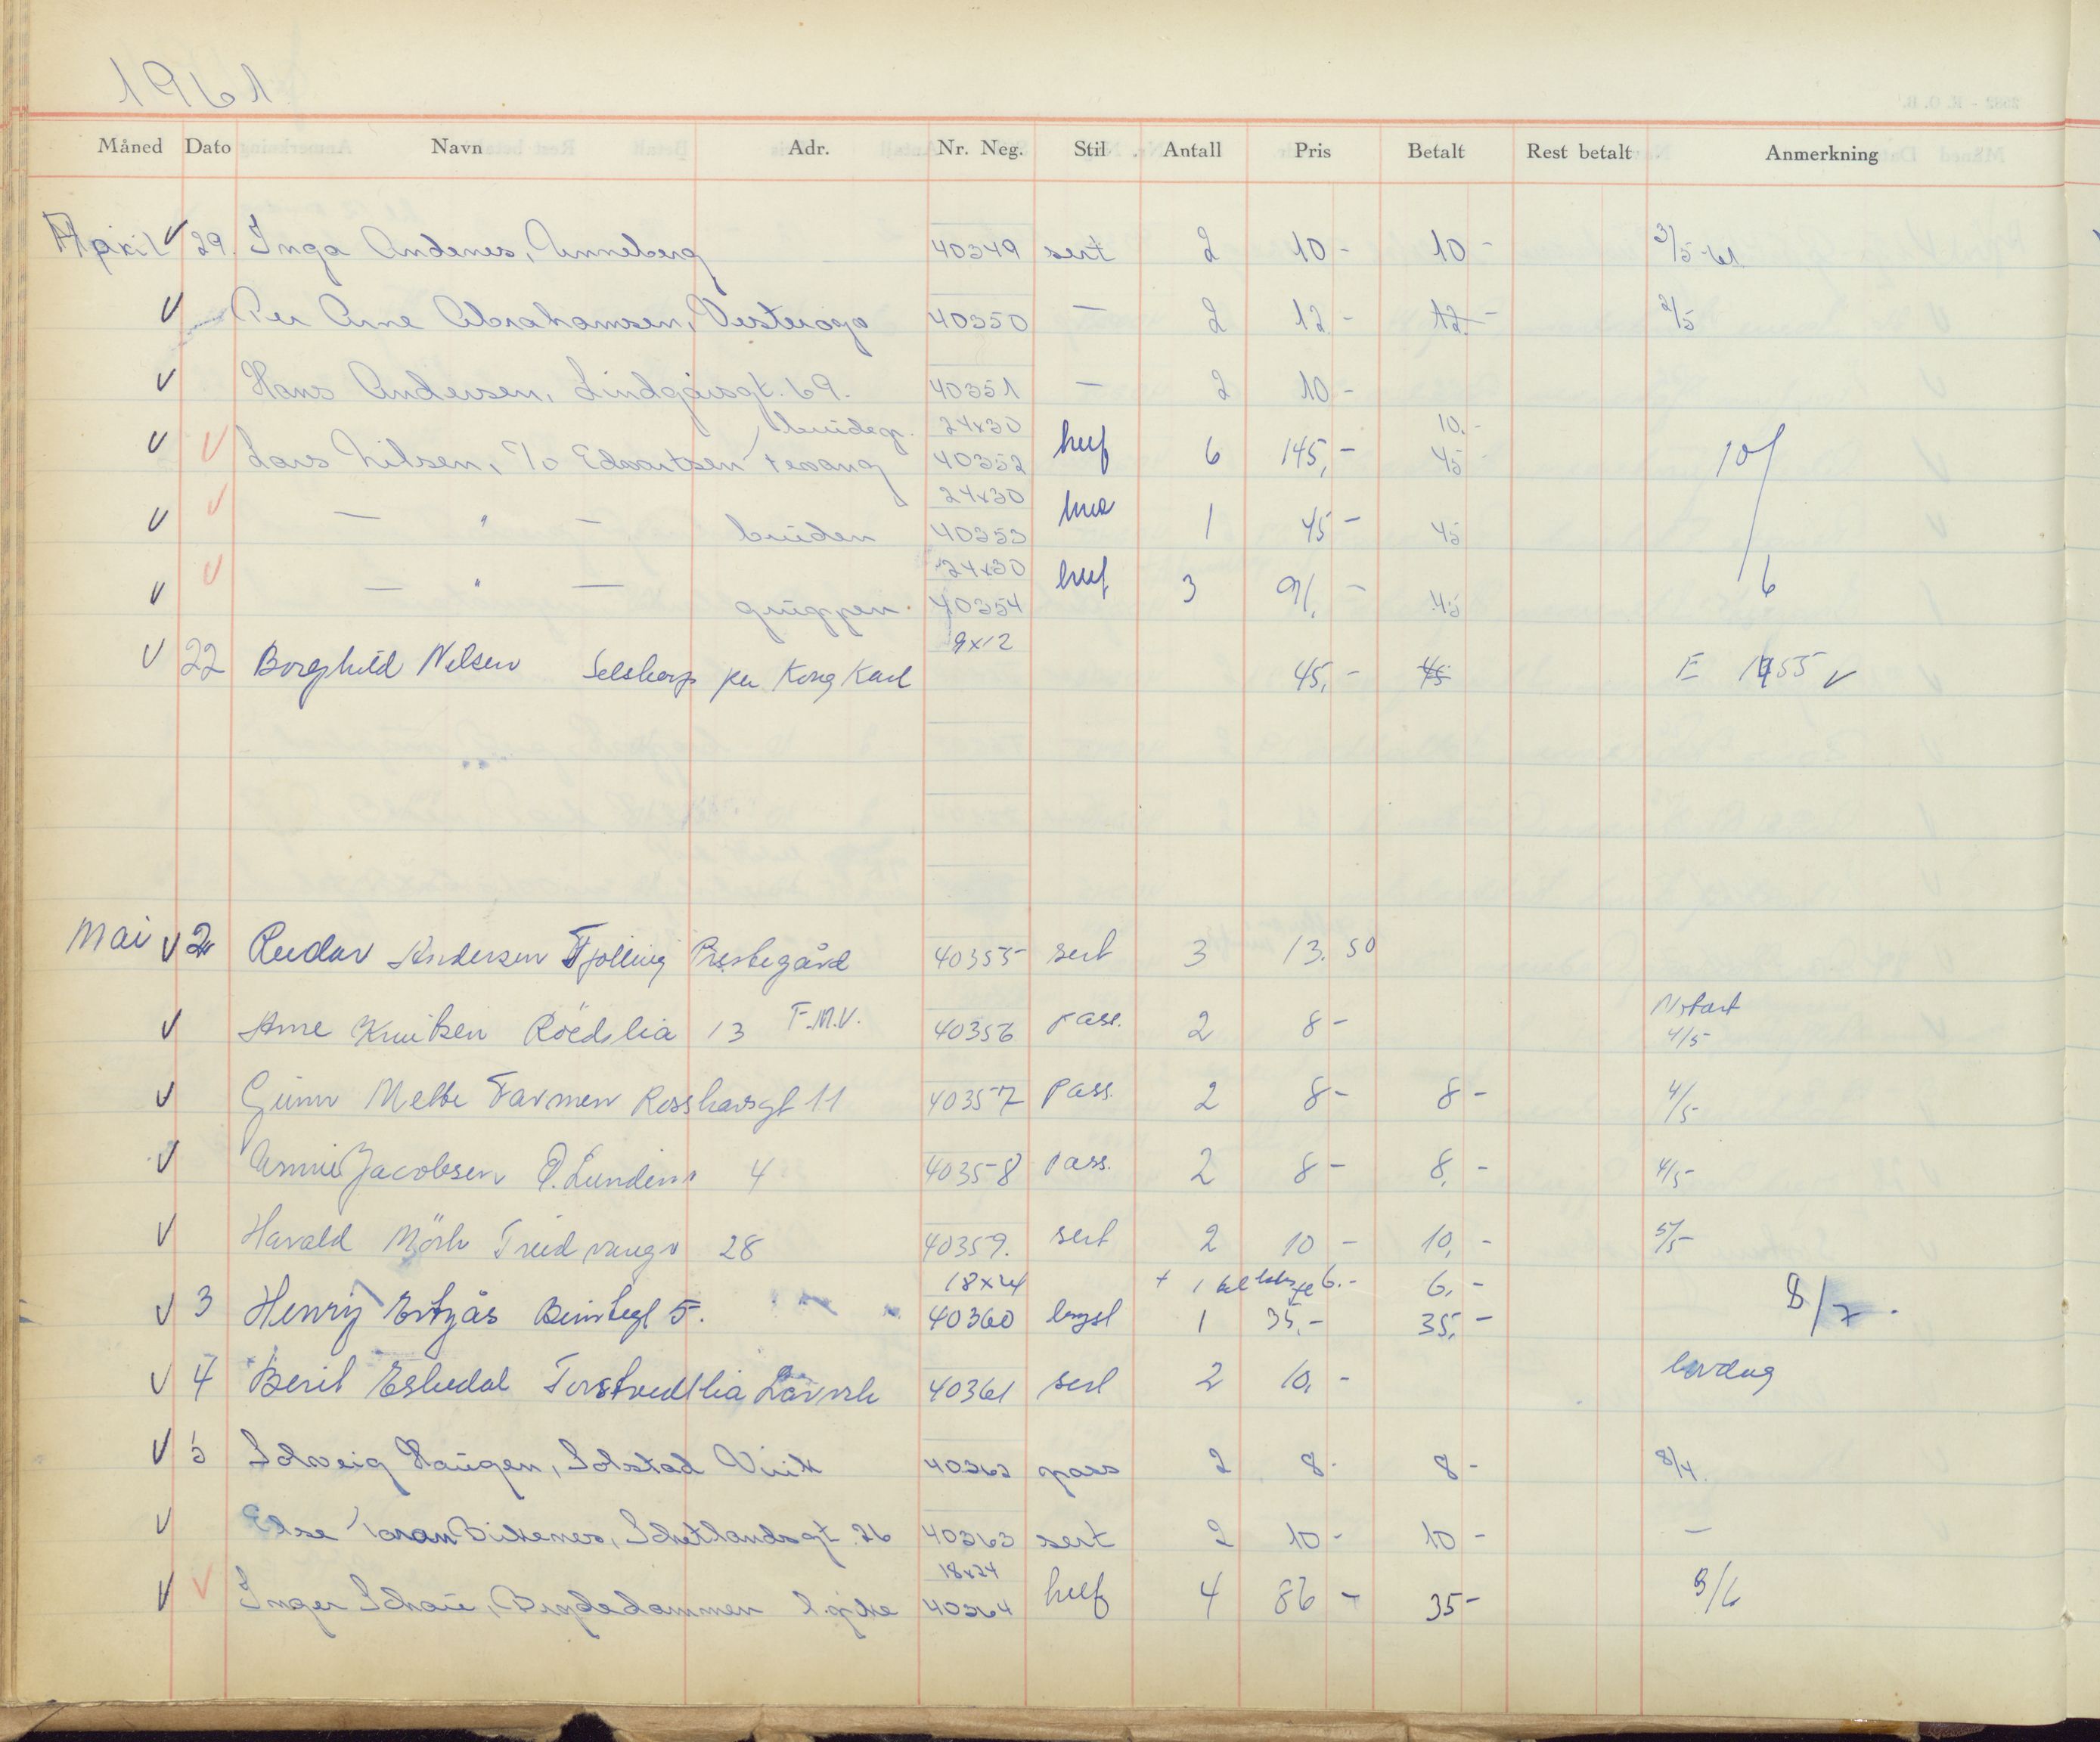 1961
Måned Dato Navn Adr. Nr. Neg. Stil Antall Pris Betalt Rest betalt Anmerkning
April V 29. Inga Andenes, Anneberg 40349 sert 2 10 - 10 - 3/5
V Per Arne Abrahamsen, Vesterøya 40350 — 2 12 - 12 - 2/5
V Hans Andersen, Lindgårsgt. 69. 40351 — 2 10 -
brudep. 24x30 10.-
V V Lars Nilsen, c/o Edvartsen Tesang 40352 6 145,- 45 10/6
24x30
V V — " — bruden 40353 1 45 - 45
24x30
V V — " — gruppen. 40354 3 91,- 45
9x12
V 22 Borghild Nilsen per Kong Karl 45,- 45 E 1955 V
Mai V 2 Reidar Andersen Tjølling Prestegård 40355 sert 3 13.50
V Arne Knutsen 13 F.M.V. 40356 pass. 2 8 - 4/5
V Gunn Mette Farmen 11 40357 Pass. 2 8 - 8 - 4/5
V Jacobsen 4 40358 pass. 2 8 - 8,- 4/5
V Harald Mörk 28 40359. sert 2 10 - 10,- 5/5
18x24 + 1 6.- 6,-
V 3 Henry 5. 40360 1 35,- 35,- 8/7.
V 4 Berit 40361 sert 2 10,- lørdag
V 5 Solveig Haugen, Solstad Virik 40362 pass 2 8- 8- 8/4.
V Else Birkenes, Schetlandsgt. 26 40363 sert 2 10 - 10 - —
18x24
V V Inger 40364 4 86 - 35-